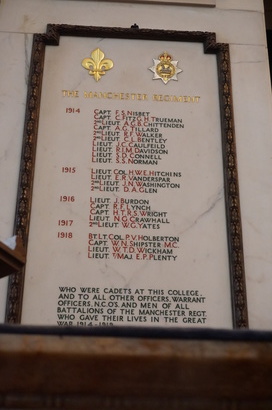 THE MANCHESTER REGIMENT
1914 CAPT. F.S. NISBET
CAPT. C. FITZG. H. TRUEMAN
2ND LIEUT. A.G.B. CHITTENDEN
CAPT. A.G. TILLARD
2ND LIEUT. R.F. WALKER
2ND LIEUT. C.L. BENTLEY
LIEUT. J.C. CAULFEILD
LIEUT. R.E.M. DAVIDSON
LIEUT. S.D. CONNELL
LIEUT. S.S. NORMAN
1915 LIEUT. COL. H.W.E. HITCHINS
LIEUT. E.R. VANDERSPAR
2ND LIEUT. J.N. WASHINGTON
2ND LIEUT. D.A. GLEN
1916 LIEUT. J. BURDON
CAPT. R.F. LYNCH
CAPT. H.T.R.S. WRIGHT
LIEUT. N.G. CRAWHALL
1917 2ND LIEUT. W.G. YATES
1918 BT. LT. COL. P.V. HOLBERTON
CAPT. W.N. SHIPSTER. M.C.
LIEUT. W.T.D. WICKHAM
LIEUT. T/MAJ. E.P. PLENTY
WHO WERE CADETS AT THIS COLLEGE,
AND TO ALL OTHER OFFICERS, WARRANT
OFFICERS, N.C.OS. AND MEN OF ALL
BATTALIONS OF THE MANCHESTER REGT.
WHO GAVE THEIR LIVES IN THE GREAT
WAR 1914-1919